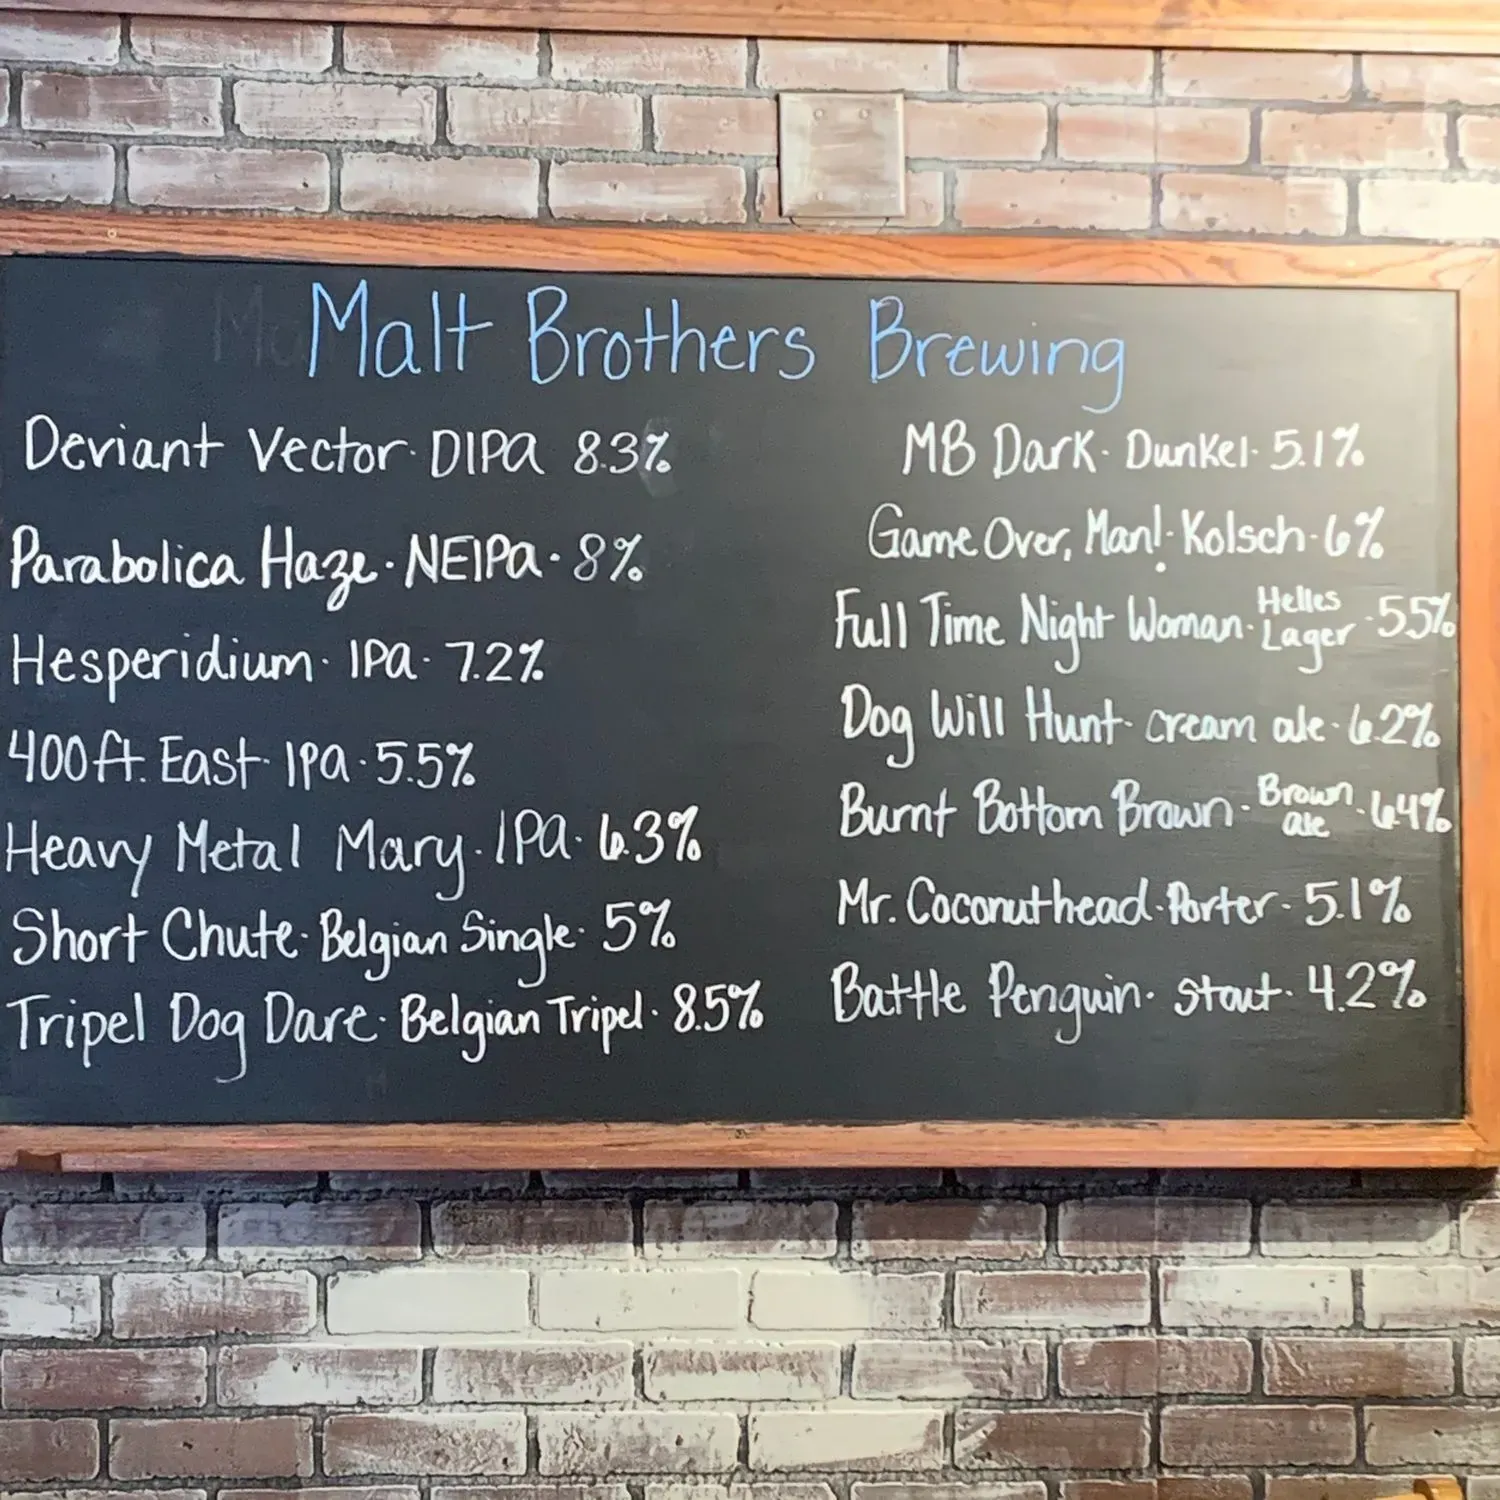 Malt Brothers Brewing
Deviant Vector · DIPA 8.3%
Parabolica Haze · NEIPA · 8%
Hesperidium · IPA · 7.2%
400ft. East · IPA · 5.5%
Heavy Metal Mary · IPA · 6.3%
Short Chute · Belgian Single · 5%
Tripel Dog Dare · Belgian Tripel · 8.5%
MB Dark · Dunkel · 5.1%
Game Over, Man! · Kolsch · 6%
Full Time Night Woman · Helles Lager · 5.5%
Dog Will Hunt · cream ale · 6.2%
Burnt Bottom Brown · Brown ale · 6.4%
Mr. Coconuthead · Porter · 5.1%
Battle Penguin · stout · 4.2%